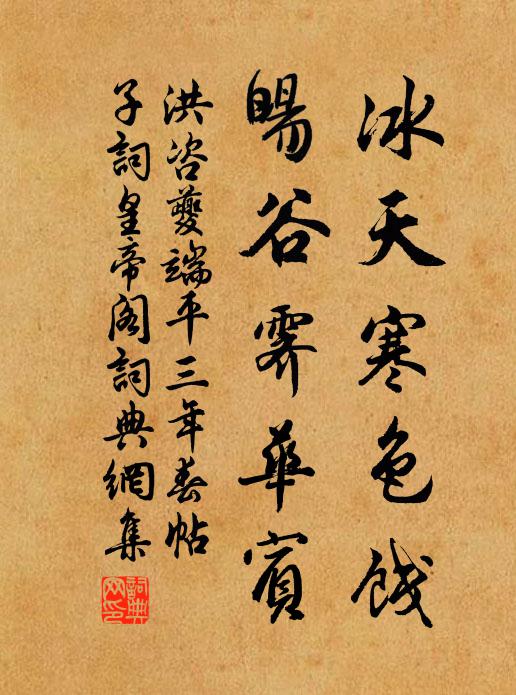 冰天寒色餞
暘谷霽華賓
洪咨夔端平三年春帖
子詞皇帝閣詞典網集
詞典网印